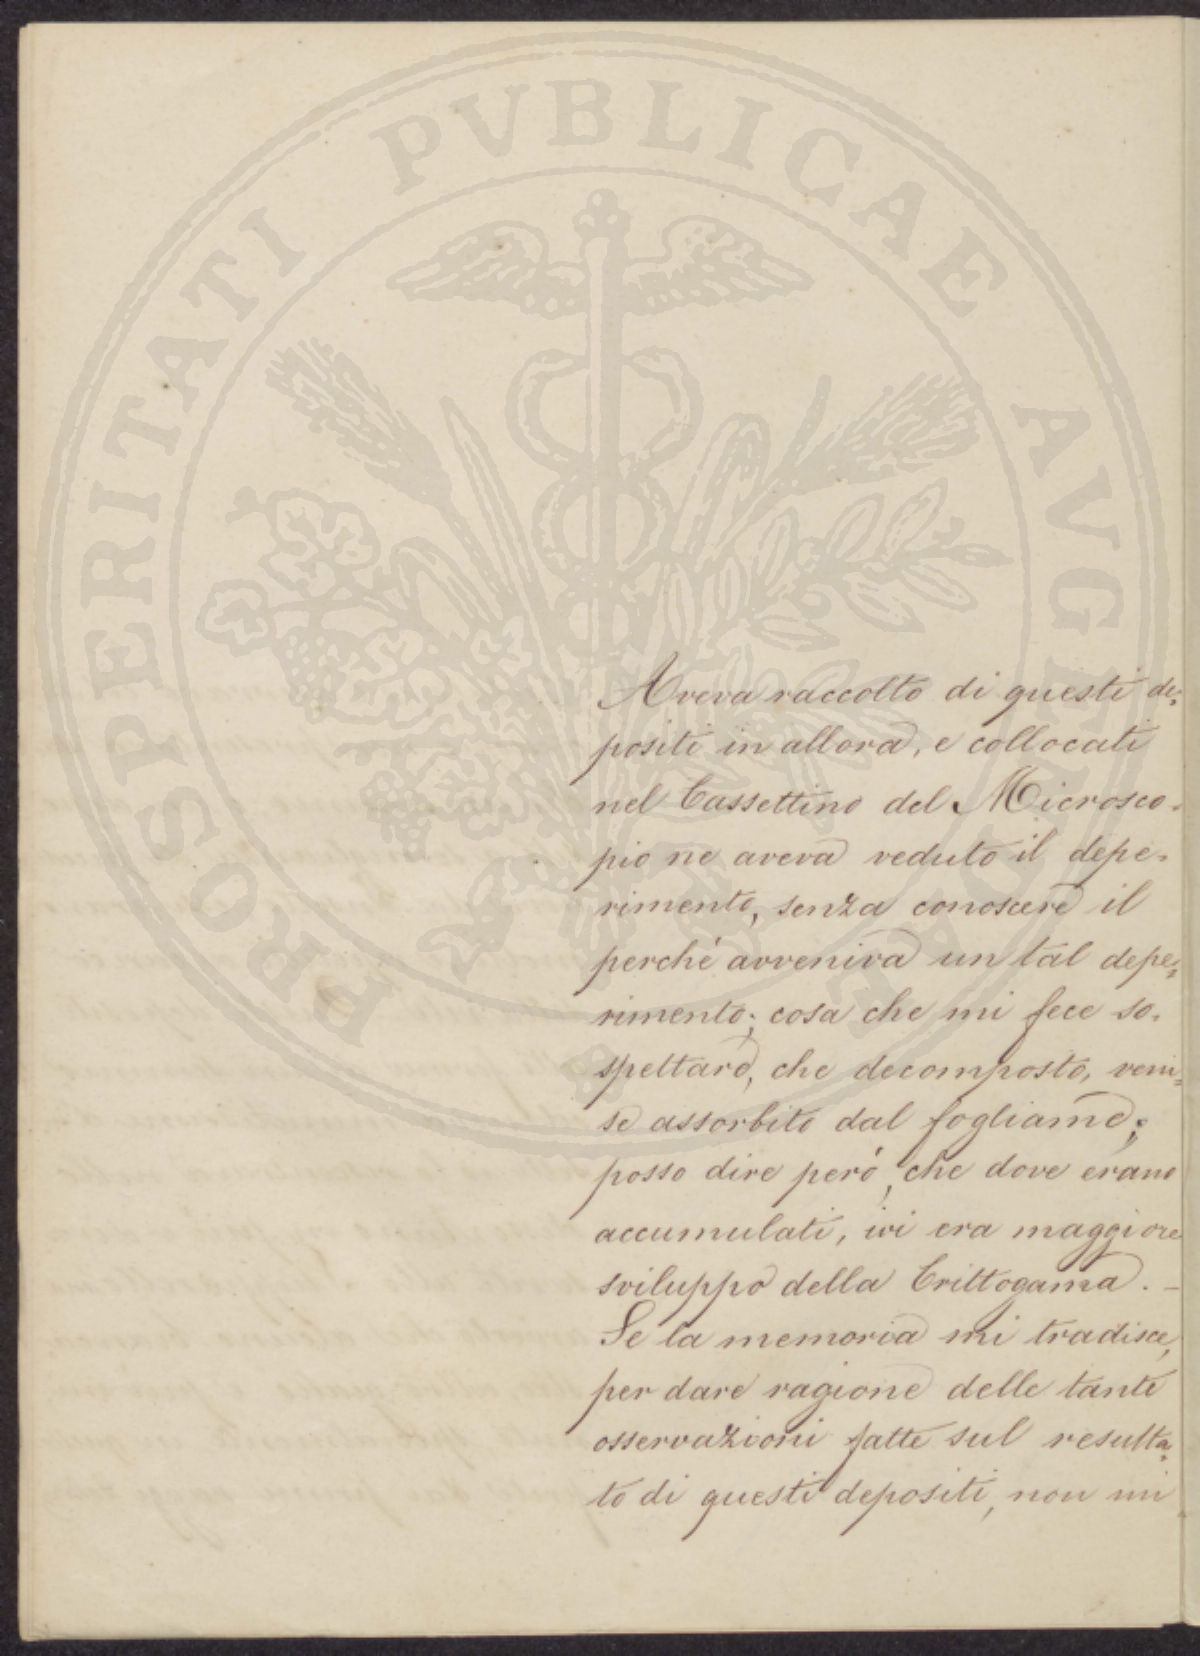 PROSPERITATI PVBLICAE AVGENDAE
Aveva raccolto di questi de=
positi in allora, e collocati
nel Cassettino del Microsco=
pio ne aveva veduto il depe=
rimento, senza conoscere il
perché avveniva un tal depe=
rimento; cosa che mi fece so=
spettare, che decomposto, veni=
se assorbito dal fogliame;
posso dire peró, che dove erano
accumulati, ivi era maggiore
sviluppo della Crittogama. –
Se la memoria mi tradisce,
per dare ragione delle tante
osservazioni fatte sul resulta=
to di questi depositi, non mi